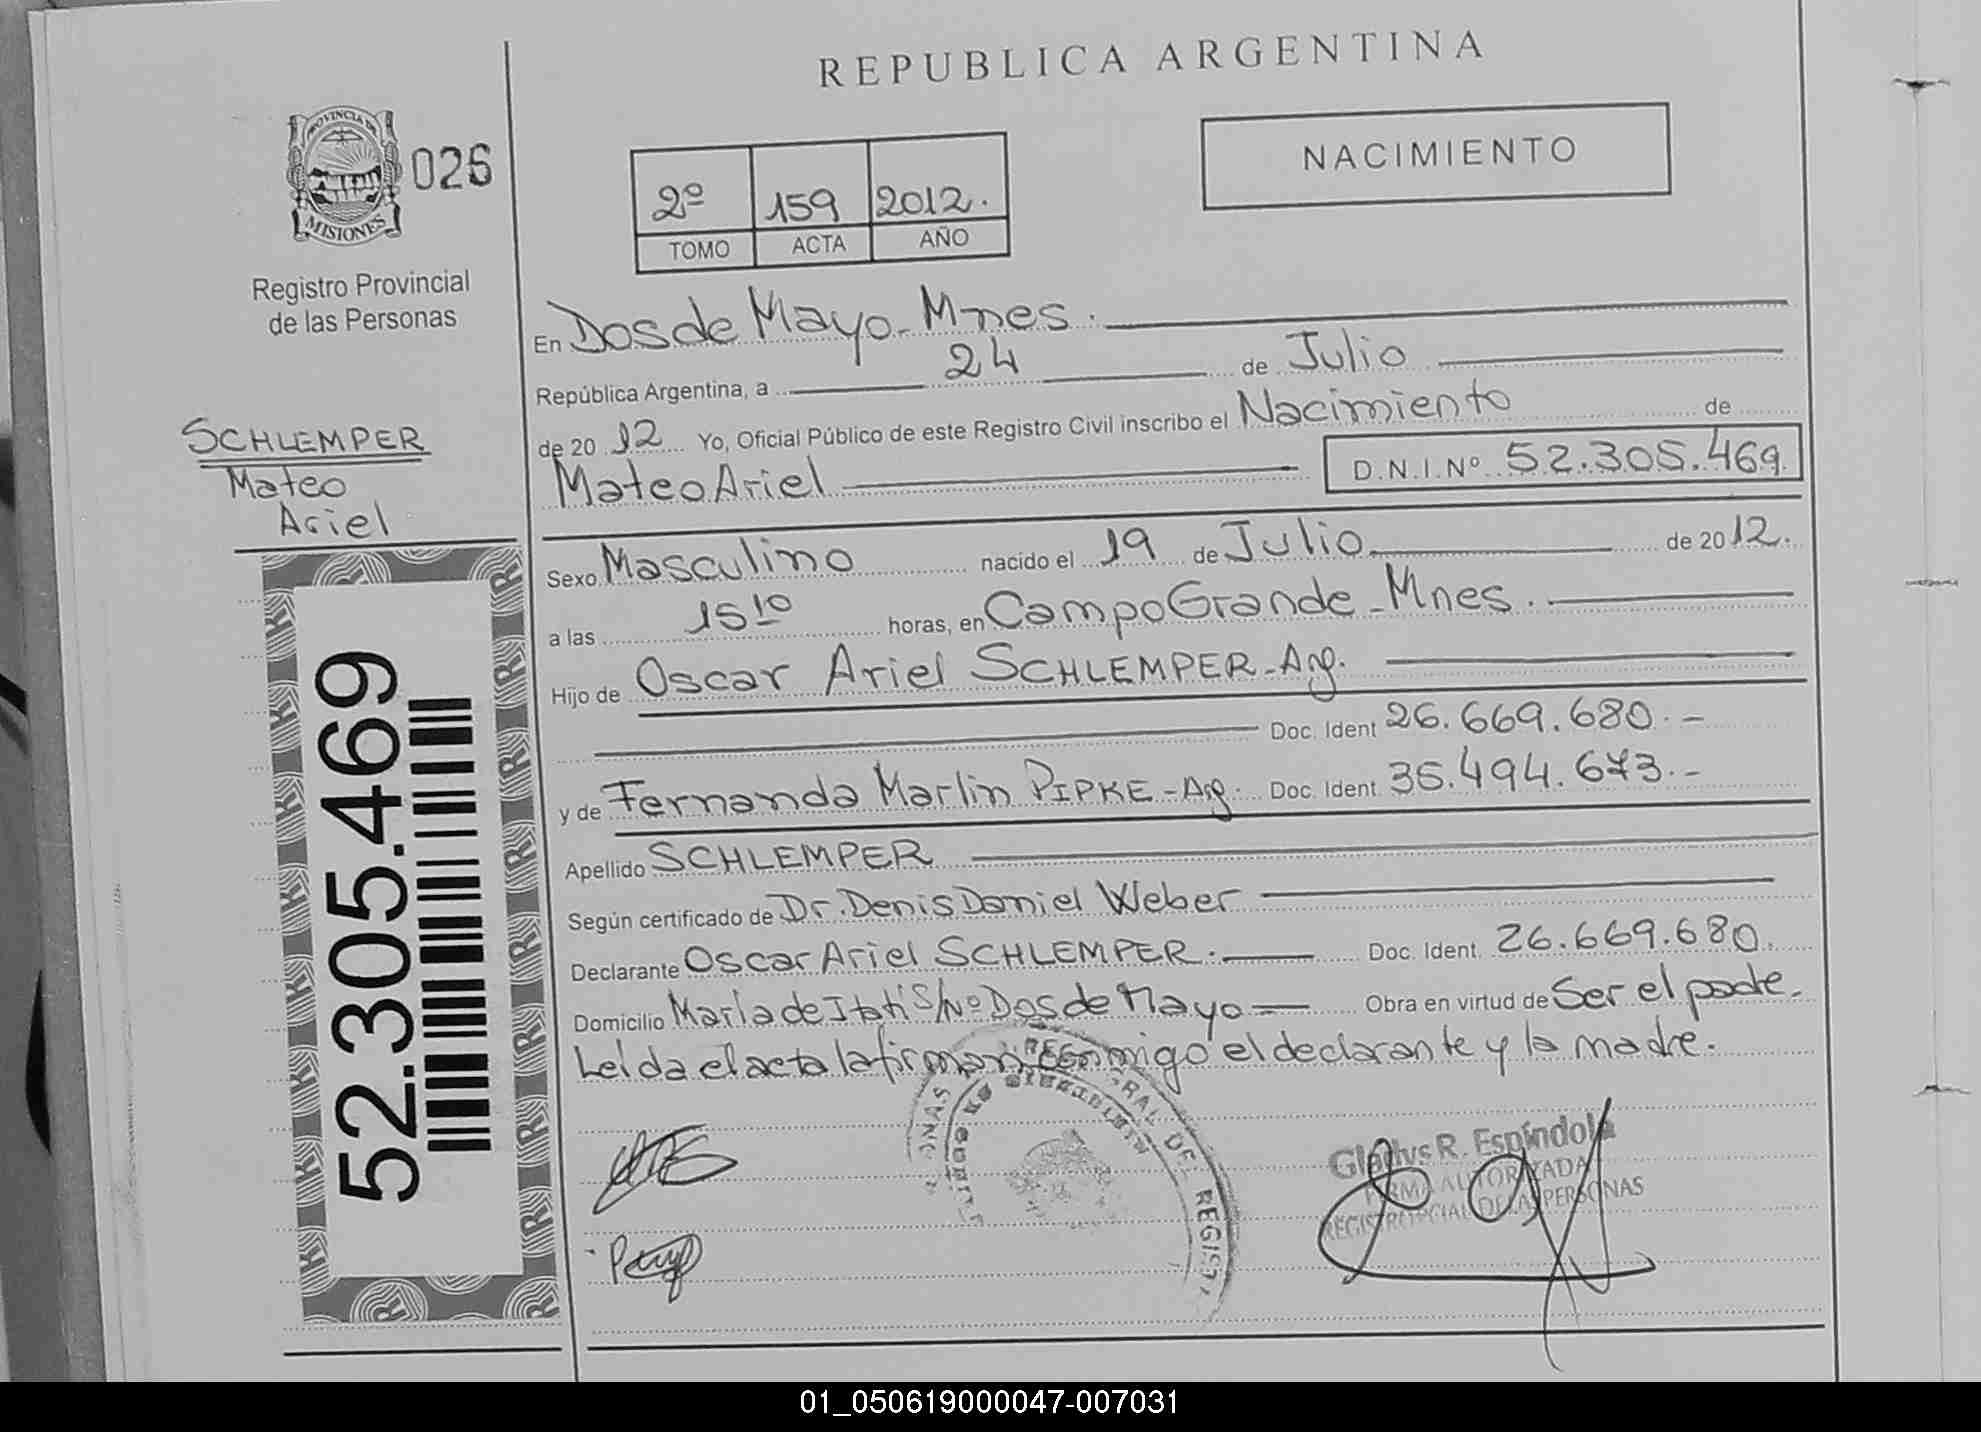 REPUBLICA ARGENTINA
PROVINCIA DE
MISIONES
026
Registro Provincial
de las Personas
NACIMIENTO
2º 159 2012.
TOMO ACTA AÑO
SCHLEMPER
Mateo
Ariel
52.305.469
En Dos de Mayo - Mnes.
República Argentina, a 24 de Julio
de 2012 Yo, Oficial Público de este Registro Civil inscribo el Nacimiento de
Mateo Ariel D.N.I.Nº 52.305.469
Sexo Masculino nacido el 19 de Julio de 2012.
a las 15 10 horas, en Campo Grande - Mnes.
Hijo de Oscar Ariel SCHLEMPER - Arg.
Doc. Ident 26.669.680.-
y de Fernanda Marlin PIPKE - Arg. Doc. Ident. 35.494.673.-
Apellido SCHLEMPER
Según certificado de Dr. Denis Daniel Weber
Declarante Oscar Ariel SCHLEMPER. Doc. Ident. 26.669.680.
Domicilio María de Itatí S/Nº Dos de Mayo Obra en virtud de Ser el padre.
Leída el acta la firman conmigo el declarante y la madre.
Gladys R. Espíndola
FIRMA AUTORIZADA
REGISTRO PCIAL DE LAS PERSONAS
01_050619000047-007031